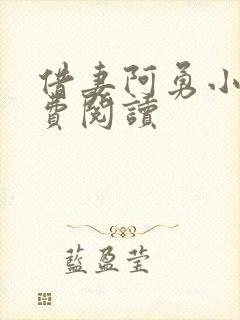 借妻阿勇小
費閱讀
藍盈莹